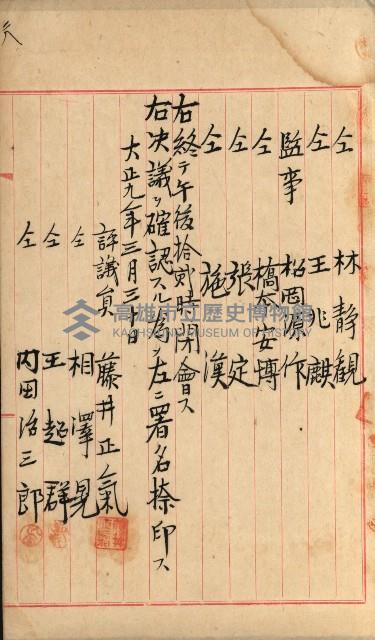 仝 林静観
仝 王兆麒
監事 松岡源作
仝 橋本安博
仝 張定
仝 施漢
右終テ午後拾弐時閉會ス
右决議ヲ確認スル為ヲ左ニ署名捺印ス
大正九年三月三十日
評議員 藤井正氣
仝 相澤晃
仝 王超群
仝 内田治三郎
高雄市立歷史博物館
KAOHSIUNG MUSEUM OF HISTORY